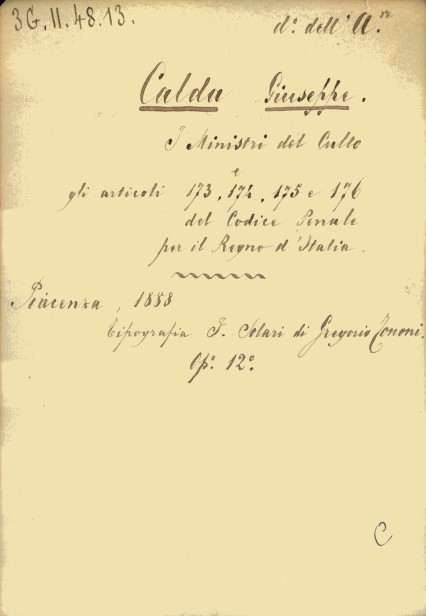 3G.II.48.13.
d.º dell'A.re
Calda Giuseppe.
I Ministri del Culto
e
gli articoli 173, 174, 175 e 176
del Codice Penale
per il Regno d'Italia.
Piacenza, 1888
Tipografia F. Solari di Gregorio Tononi.
Op.º 12.º
C